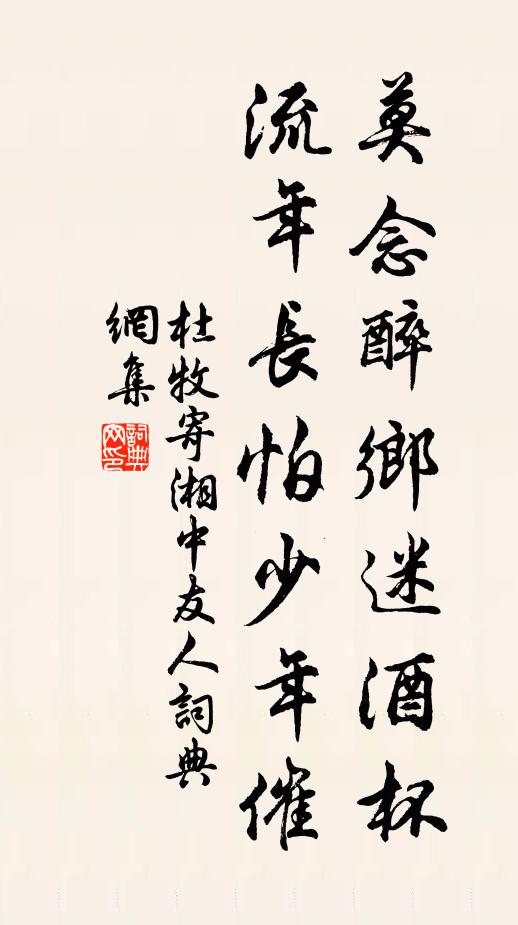 莫念醉鄉迷酒杯
流年長怕少年催
杜牧寄湘中友人詞典
網集
詞典網印